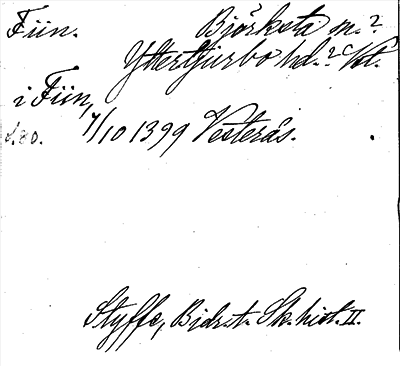 Fiin. Björksta m.?
Yttertjurbo hd.? Vt.
i Fiin, 7/10 1399 Vesterås.
s. 80.
Styffe, Bidr. t. Sk. hist. II.